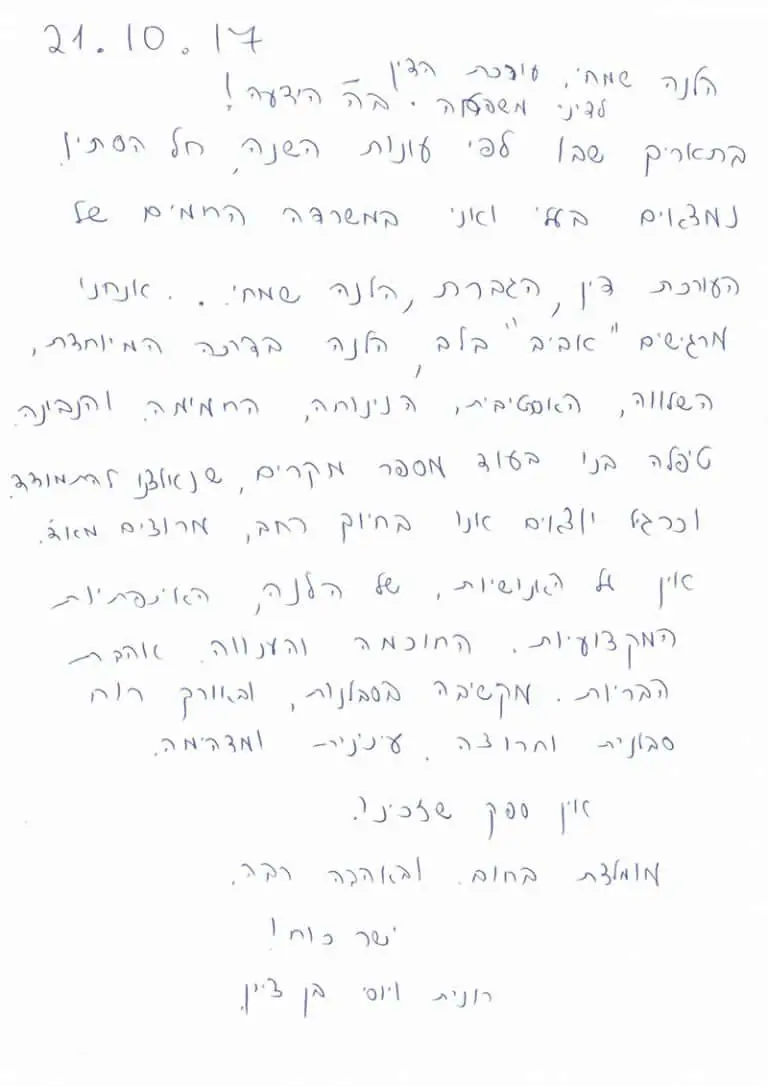 21.10.17
הלנה שמחי, עורכת הדין
לדיני משפחה. בה' הידיעה!
בתאריך שבו לפי עונות השנה, חל הסתיו.
נמצאים בעלי ואני במשרדה החמים של
העורכת דין, הגברת, הלנה שמחי. . אנחנו
מרגישים "אביב" בלב, הלנה בדרכה המיוחדת,
השלווה, האסרטיבית, הנינוחה, החמימה. והנבינה.
טיפלה בני בעוד מספר מקרים, שנאלצנו להתמודד.
וכרגיל יוצאים אנו בחיוך רחב, מרוצים מאוד.
אין על האנושיות, של הלנה, האינפתיות
המקצועיות. החוכמה והענווה. אהבת
הבריות. מקשיבה בסבלנות, ובאורך רוח
סבלנית וחרוצה. עינינית ומדהימה.
אין ספק שזכינו!.
מומלצת בחום. ובאהבה רבה.
ישר כוח!
רונית ויוסי בן ציין.